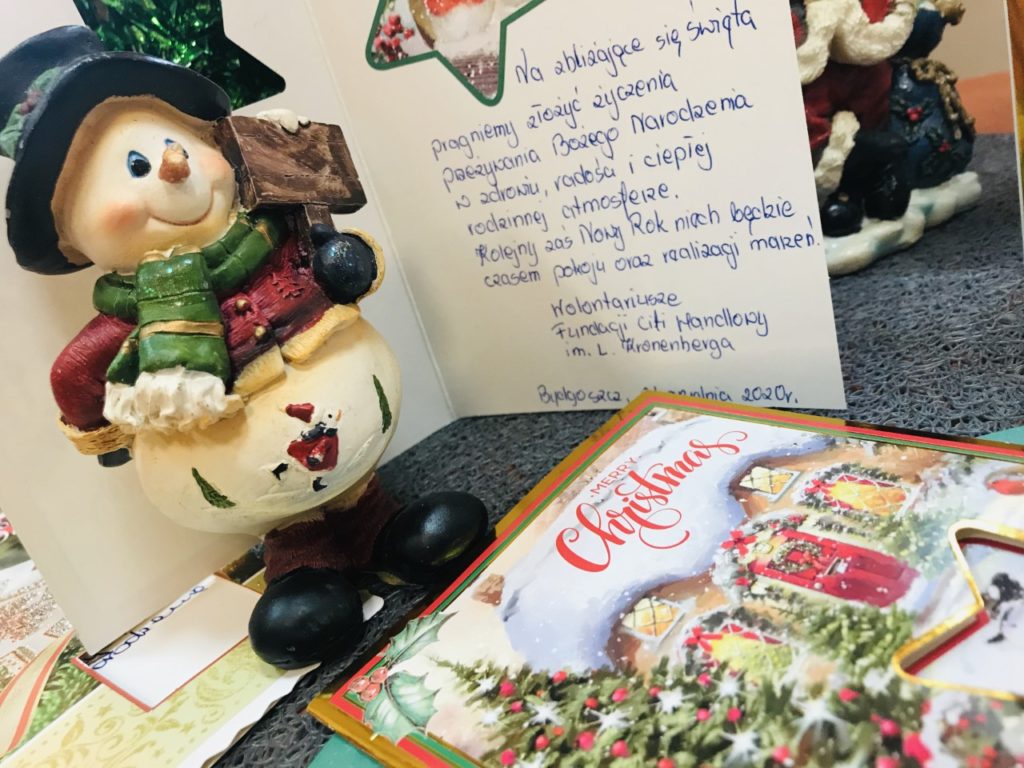 Na zbliżające się święta
pragniemy złożyć życzenia
przeżywania Bożego Narodzenia
w zdrowiu, radości i ciepłej
rodzinnej atmosferze.
Kolejny zaś Nowy Rok niech będzie
czasem pokoju oraz realizacji marzeń!
Wolontariusze
Fundacji Citi Handlowy
im. L. Kronenberga
Bydgoszcz, grudnia 2020r.
MERRY
Christmas